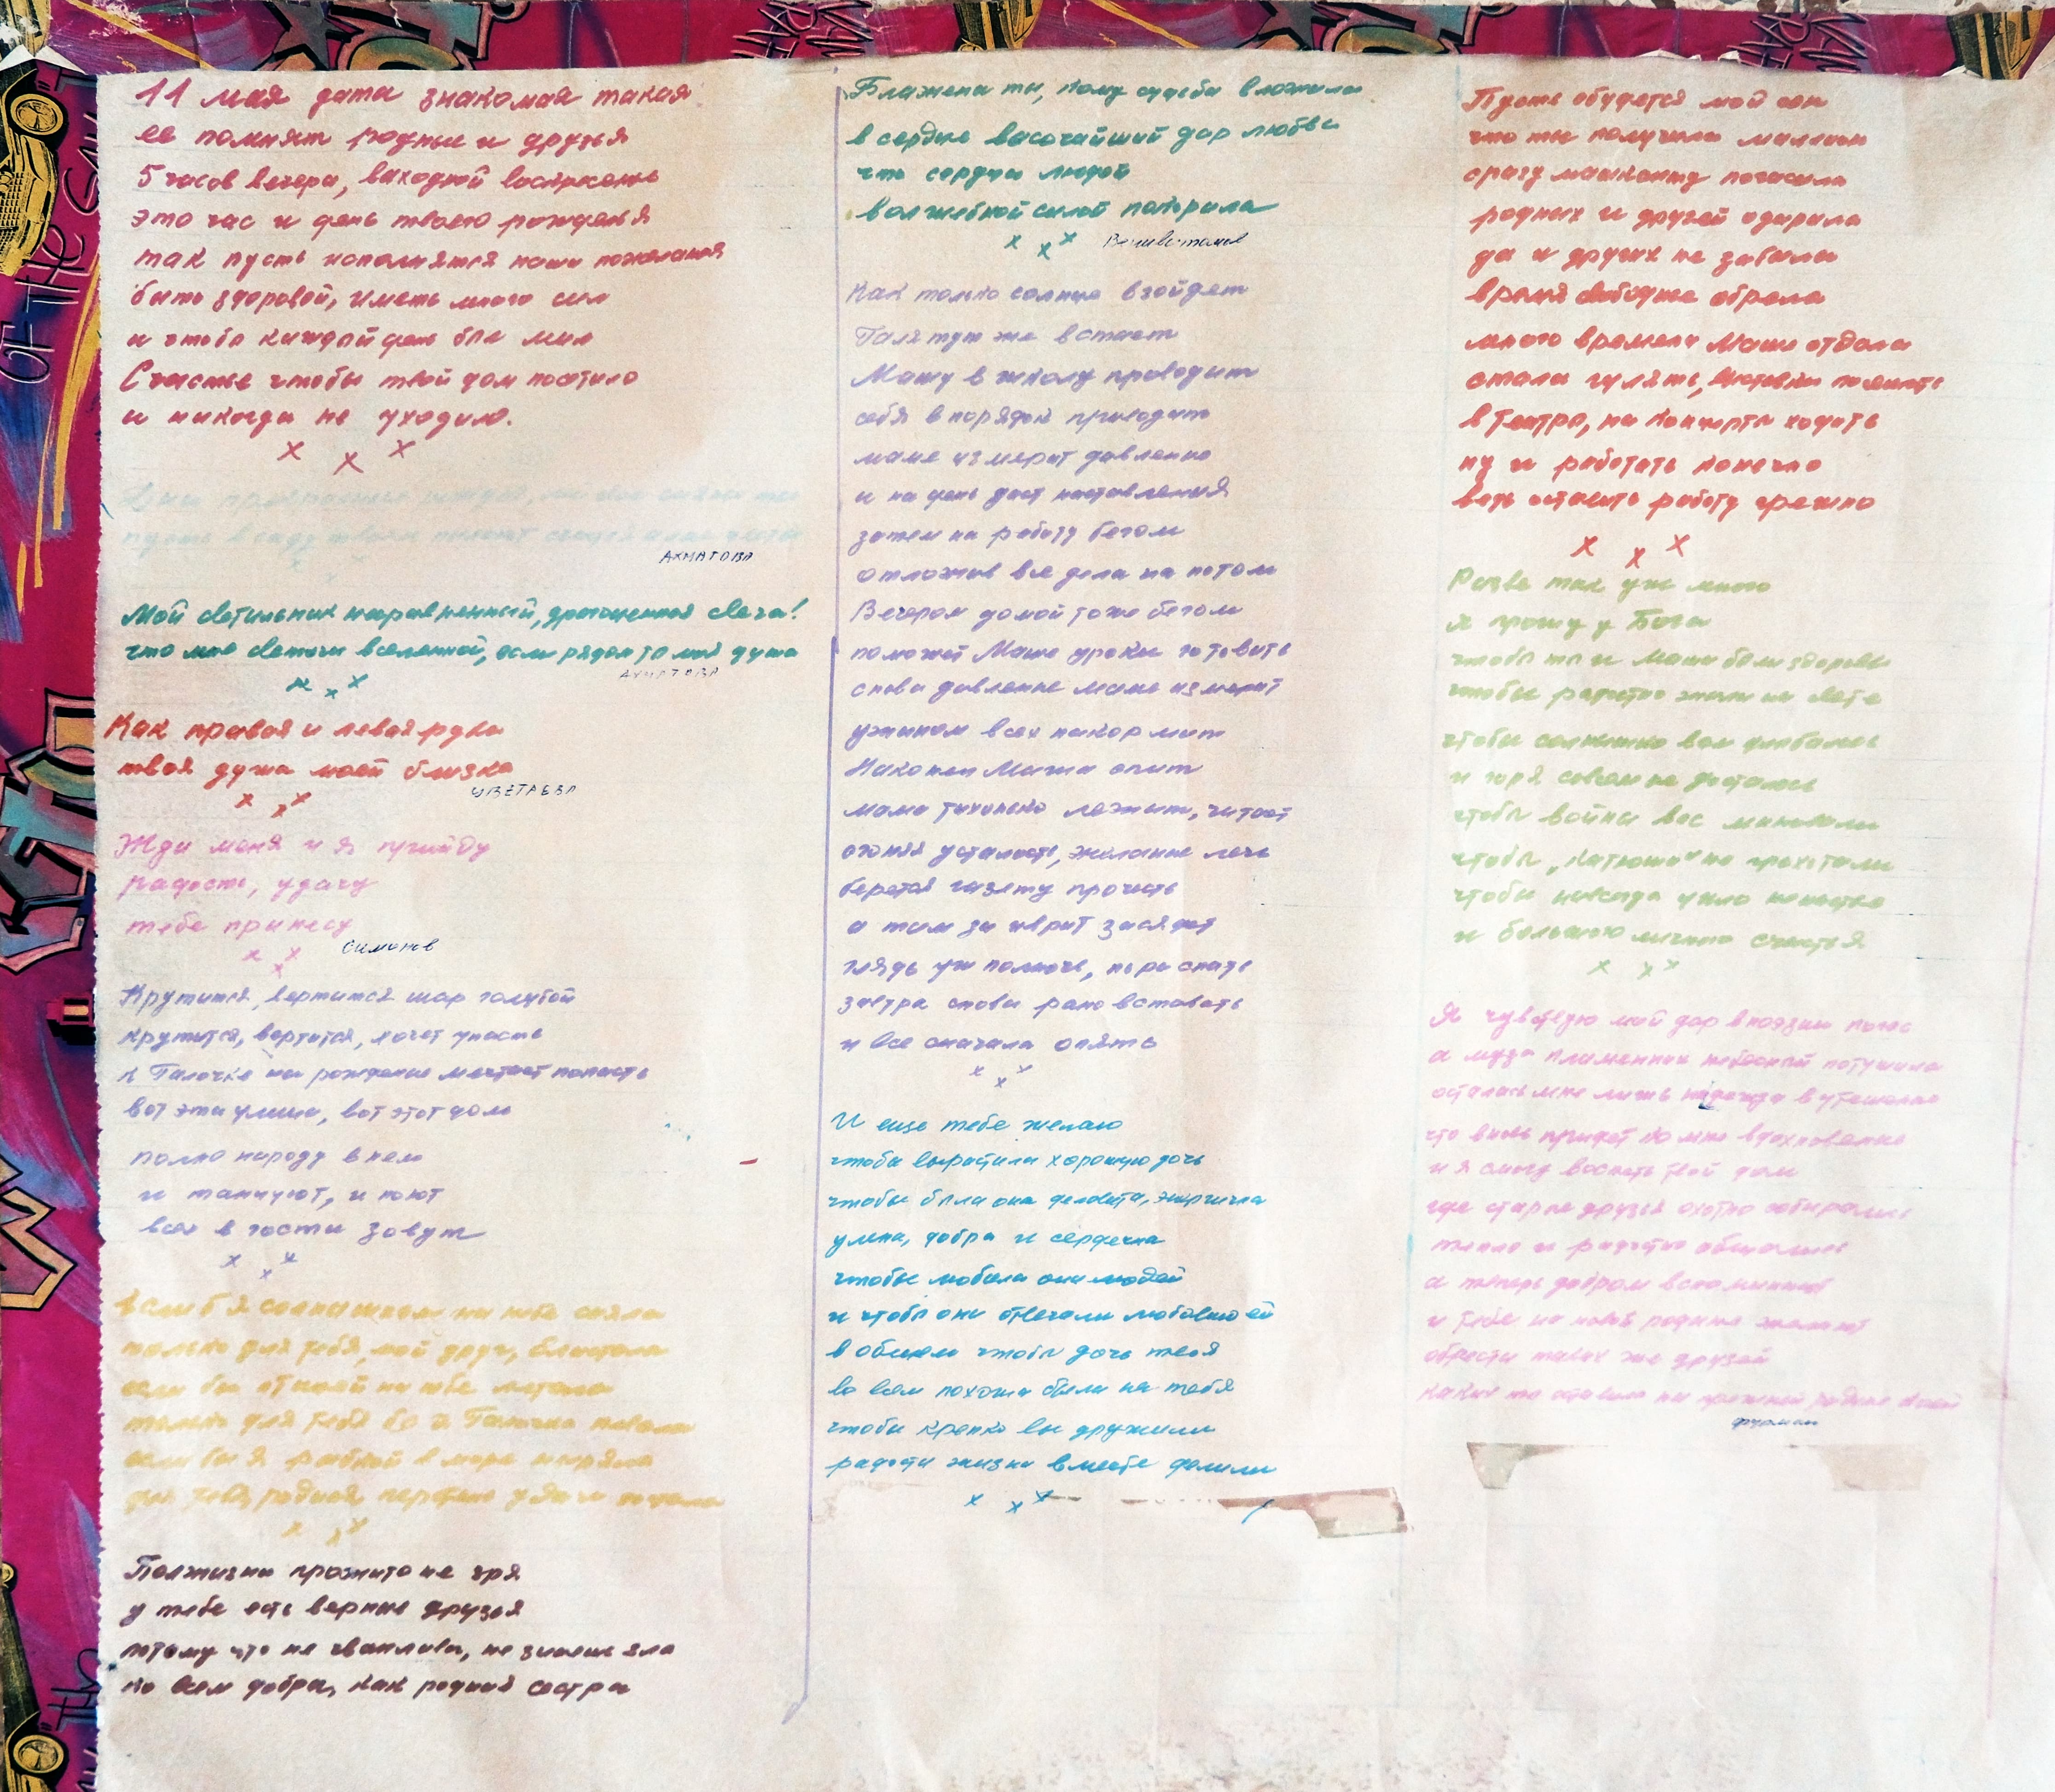 11 мая дата знакомая такая
ее помнят родные и друзья
5 часов вечера, выходной воскресенье
это час и день твоего рожденья
так пусть исполнятся наши пожелания
быть здоровой, иметь много сил
и чтоб каждый день был мил
Счастье чтобы твой дом посетило
и никогда не уходило.
х х х
пусть в саду твоем
АХМАТОВА
Мой светильник несравненный, драгоценная свеча!
что мне светочи вселенной, если рядом та моя душа
АХМАТОВА
х х х
Как правая и левая рука
твоя душа моей близка
ЦВЕТАЕВА
х х х
Жди меня и я прийду
радость, удачу
тебе принесу
Симонов
х х х
Крутится, вертится шар голубой
крутится, вертится, хочет упасть
к Галочке на рождение мечтает попасть
вот эта улица, вот этот дом
полно народу в нем
и танцуют, и поют
всех в гости зовут
х х х
если б я солнышком на небе сияла
только для тебя, мой друг, блистала
если бы птицей на небе летала
только для тебя бы и Галочка
если бы я рыбкой в море ныряла
для тебя, родная,
х х х
Полжизни прожито не зря
у тебя есть верные друзья
потому что не чванлива, не знаешь зла
ко всем добра, как родная сестра
Блажена ты, кому судьба вложила
в сердце височайший дар любви
что сердца людей
волшебной силой покорила
х х х
Как только солнце взойдет
Галя тут же встает
Машу в школу проводит
себя в порядок приводит
маме измерит давление
и на день даст наставления
затем на работу бегом
отложив все дела на потом
Вечером домой тоже бегом
поможет Маше уроки готовить
снова давление маме измерит
ужином всех накормит
Наконец Маша спит
мама тихонько лежит, читает
усталость, желание лечь
берется газету прочесть
а там за иврит засядет
глядь уж полночь, пора спать
завтра снова рано вставать
и все сначала опять
х х х
И еще тебе желаю
чтобы вырастила хорошую дочь
чтобы была она деловита, энергична
умна, добра и сердечна
чтобы любила она людей
и чтобы они отвечали любовью ей
в общем чтобы дочь твоя
во всем похожа была на тебя
чтобы крепко вы дружили
радости жизни вместе делили
х х х
Пусть сбудется мой сон
что ты получила миллион
сразу машканту погасила
родных и друзей одарила
да и других не забыла
время свободное обрела
много времени Маше отдала
стала гулять, выставки посещать
в театры, на концерты ходить
ну и работать конечно
ведь оставить работу грешно
х х х
Разве так уж много
я прошу у Бога
чтобы ты и Маша были здоровы
чтобы радостно жили на свете
чтобы солнышко вам улыбалось
и горя совсем не досталось
чтобы войны вас миновали
чтобы „Катюши" не грохотали
чтобы навсегда ушло ненастье
и большого личного счастья
х х х
Я чувствую мой дар в поэзии погас
а муза пламенник небесный потушила
осталась мне лишь надежда в утешение
что вновь придет ко мне вдохновение
и я смогу воспеть твой дом
где старые друзья охотно собирались
тепло и радостно общались
а теперь добром вспоминают
и тебе на новой родине желают
обрести таких же друзей
каких ты оставила на прежней родине своей
Фурман